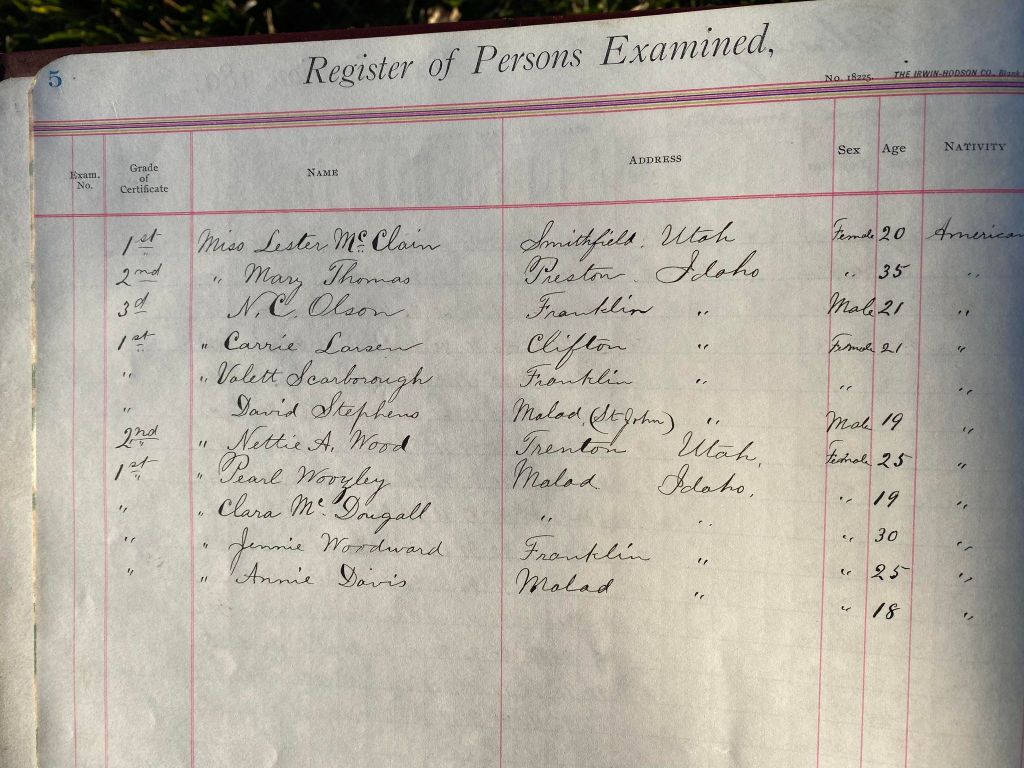 5
Register of Persons Examined,
No. 18225. THE IRWIN-HODSON CO., Blank
Exam. No. Grade of Certificate NAME ADDRESS Sex Age NATIVITY
1st Miss Lester McClain Smithfield. Utah Female 20 American
2nd " Mary Thomas Preston. Idaho " 35 "
3d N. C. Olson Franklin " Male 21 "
1st " Carrie Larsen Clifton " Female 21 "
" " Valett Scarborough Franklin " " "
" David Stephens Malad (St. John) " Male 19 "
2nd " Nettie A. Wood Trenton Utah. Female 25 "
1st " Pearl Woozley Malad. Idaho. " 19 "
" " Clara McDougall " " " 30 "
" " Jennie Woodward Franklin " " 25 "
" " Annie Davis Malad " " 18 "